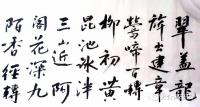 翠盖龍
旂出建章
鶯啼百囀
柳初黄
昆池冰泮
三山近阿
閣花深九
陌香徑轉